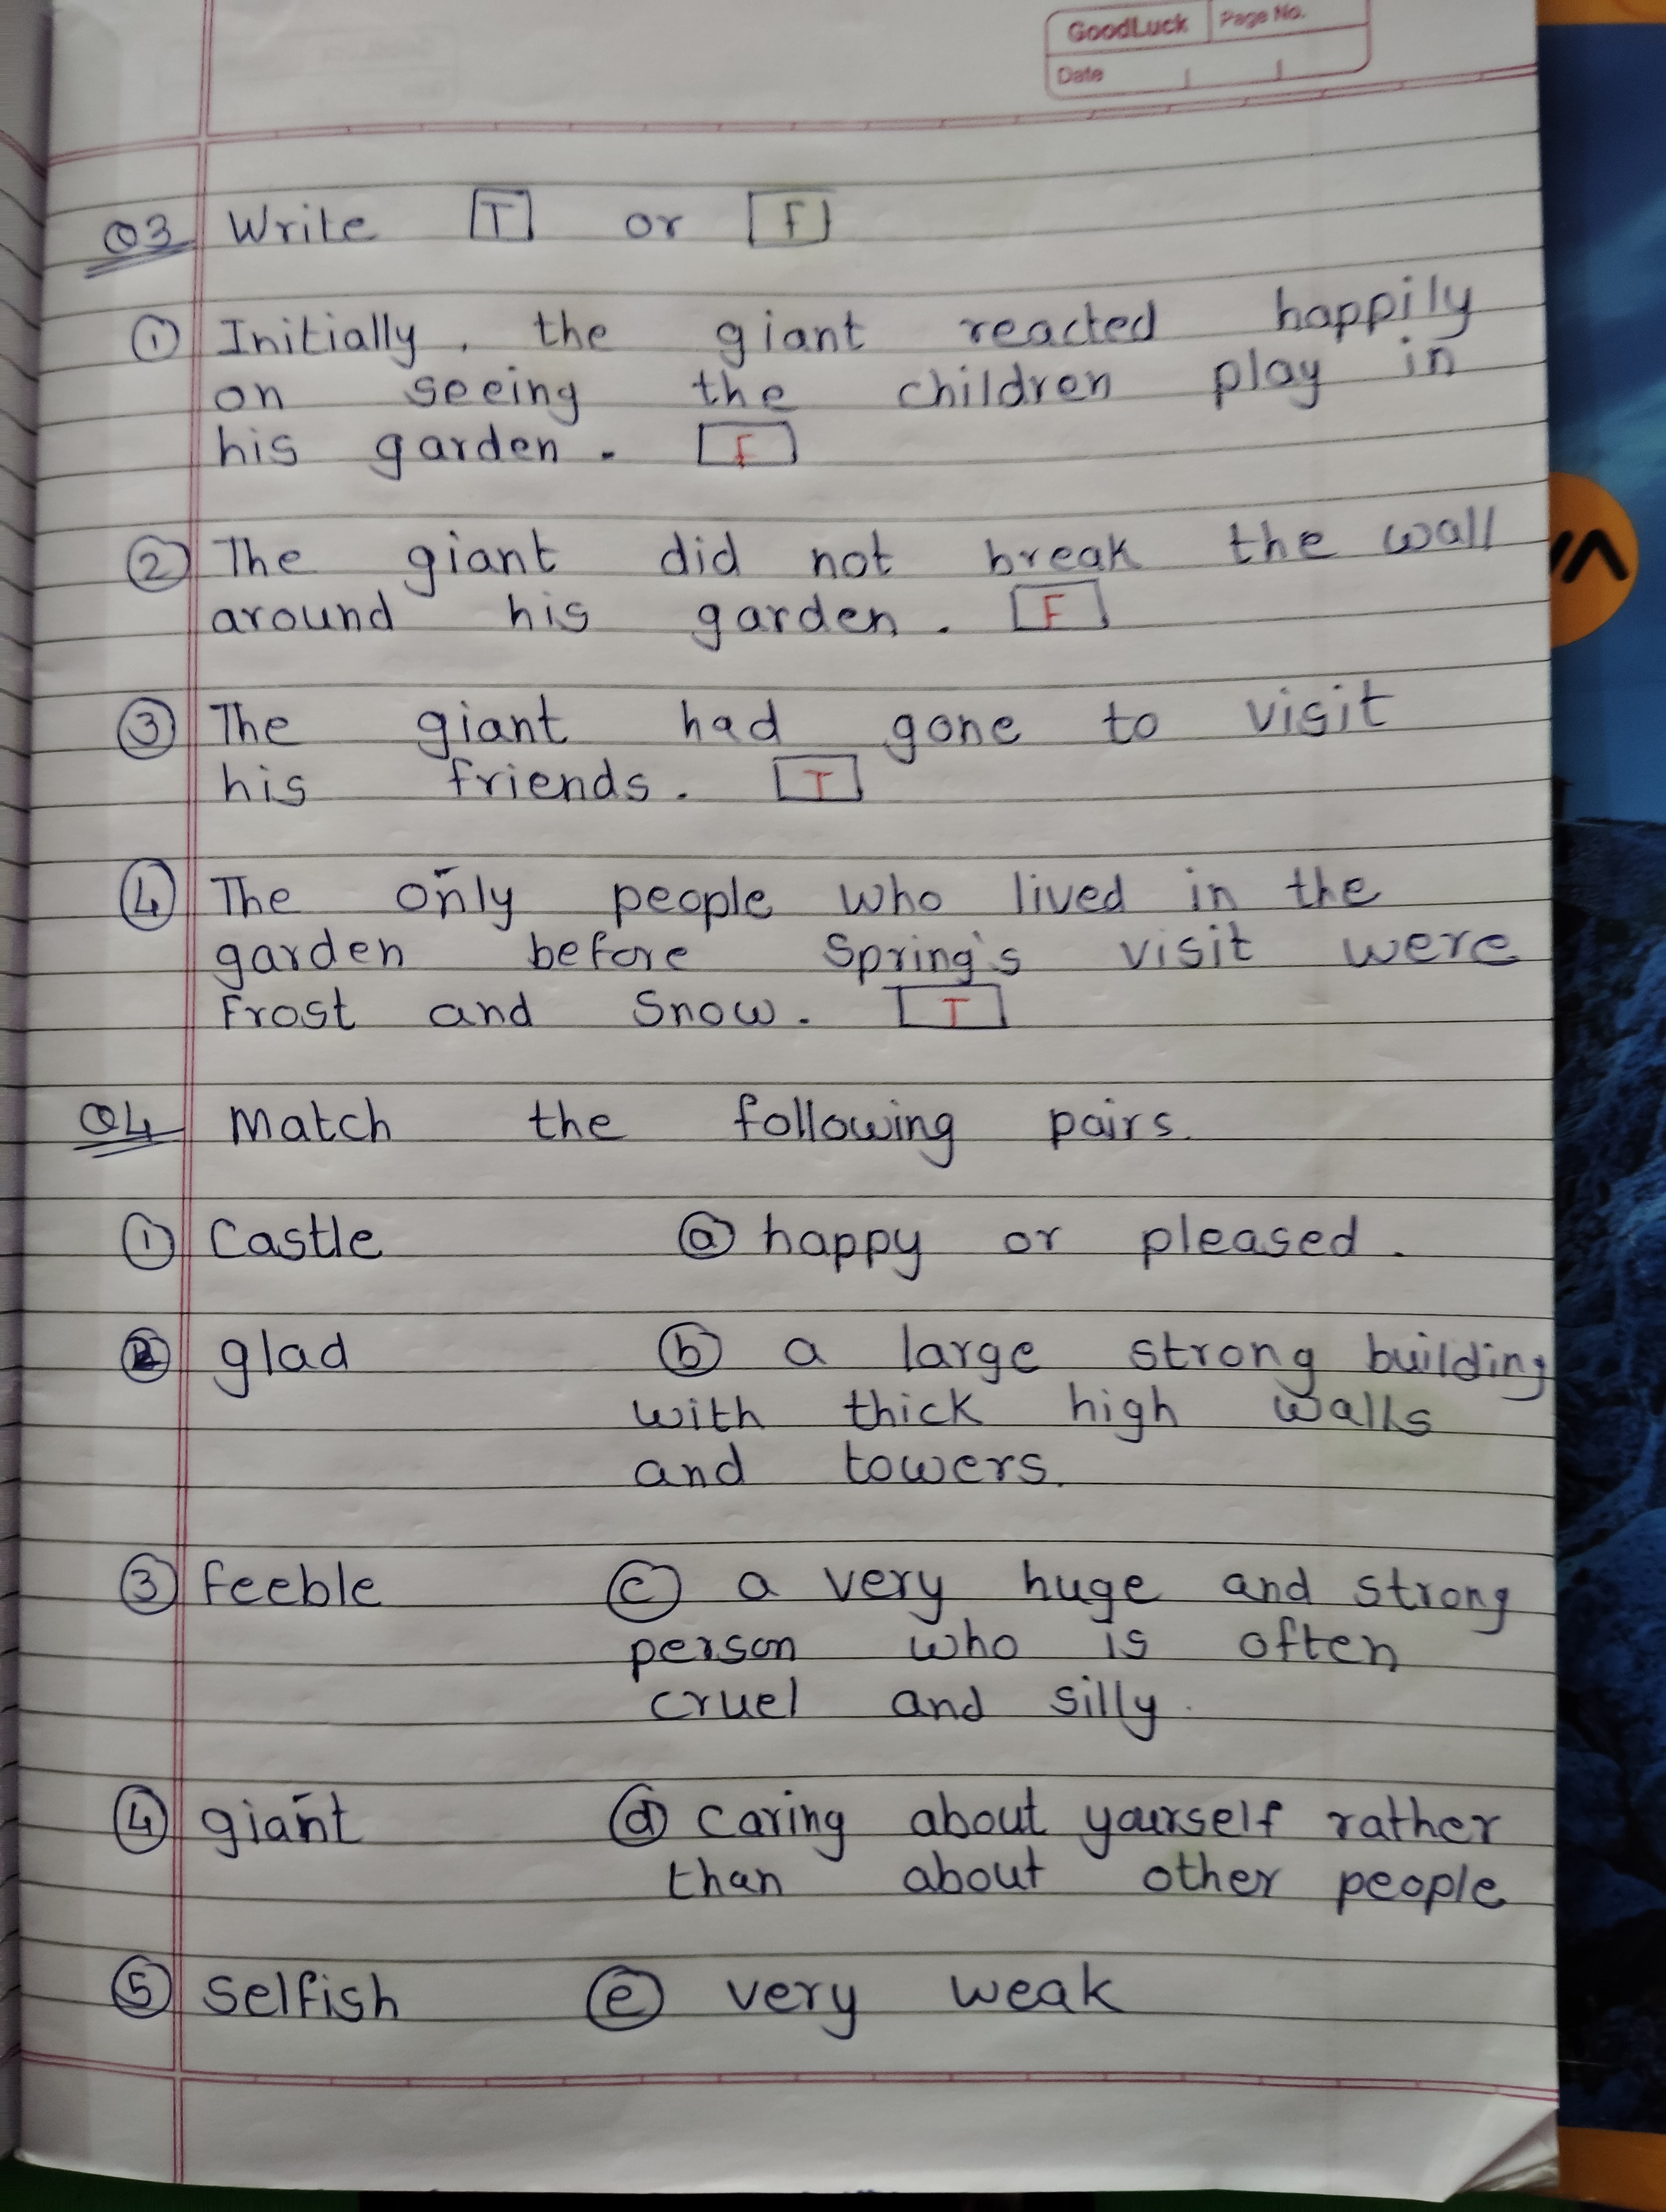 GoodLuck Page No.
Date
Q3 Write T or F
① Initially, the giant reacted happily
on seeing the children play in
his garden. F
② The giant did not break the wall
around his garden. F
③ The giant had gone to visit
his friends. T
④ The only people who lived in the
garden before Spring's visit were
Frost and Snow. T
Q4 Match the following pairs.
① Castle ⓐ happy or pleased.
② glad ⓑ a large strong building
with thick high walls
and towers.
③ feeble ⓒ a very huge and strong
person who is often
cruel and silly.
④ giant ⓓ caring about yourself rather
than about other people
⑤ Selfish ⓔ very weak